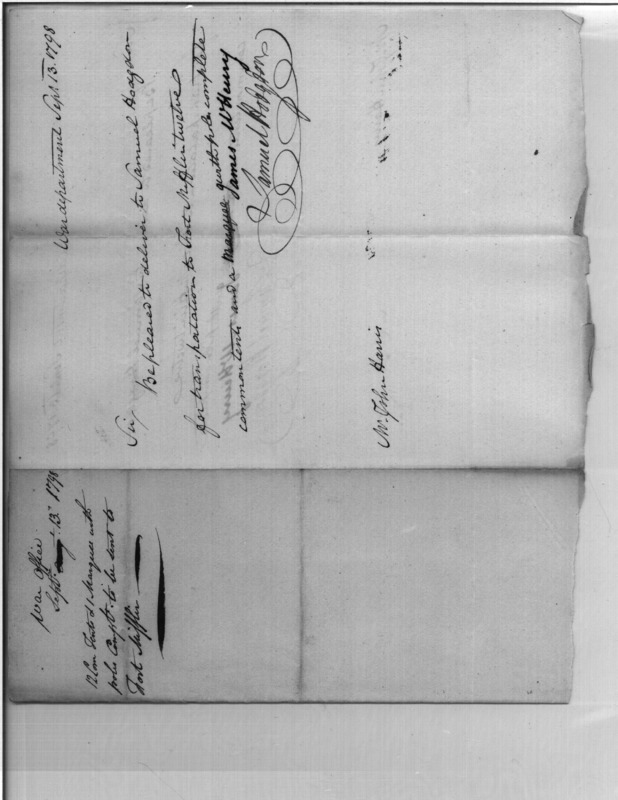 War department Sept. 13. 1798
Sir,
Be pleased to deliver to Samuel Hodgdon
for transportation to Fort Mifflin twelve
common tents and a Marquee with poles complete
James McHenry
Samuel Hodgdon
Mr. John Harris
War Office
Sept. 13. 1798
12 Com Tents & 1 Marquee with
poles Complt. to be sent to
Fort Mifflin